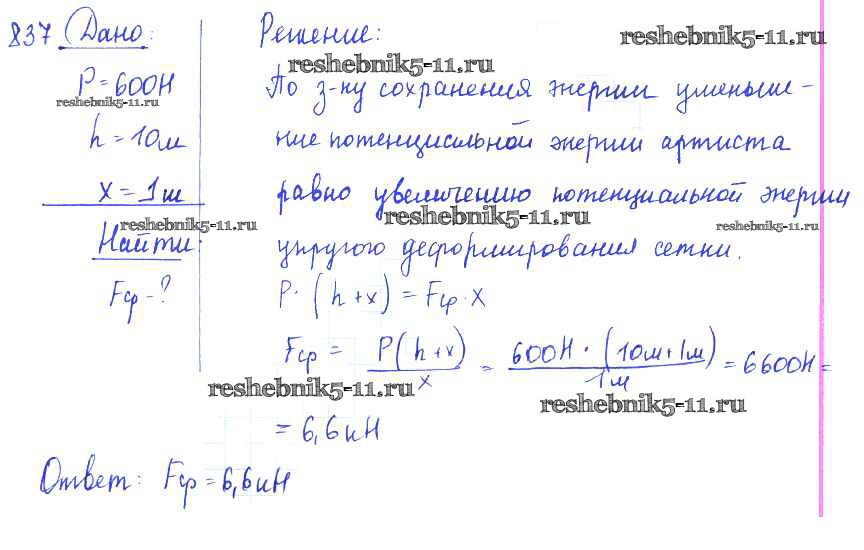 837 Дано: Решение:
reshebnik5-11.ru
reshebnik5-11.ru
P = 600Н
reshebnik5-11.ru
По з-ну сохранения энергии уменьше-
h = 10м
ние потенциальной энергии артиста
x = 1м
равно увеличению потенциальной энергии
reshebnik5-11.ru
reshebnik5-11.ru
reshebnik5-11.ru
Найти:
упругого деформирования сетки.
Fср - ?
P · (h + x) = Fср · x
Fср = P(h+x) / x = 600Н · (10м + 1м) / 1м = 6600Н =
reshebnik5-11.ru
reshebnik5-11.ru
= 6,6кН
Ответ: Fср = 6,6кН